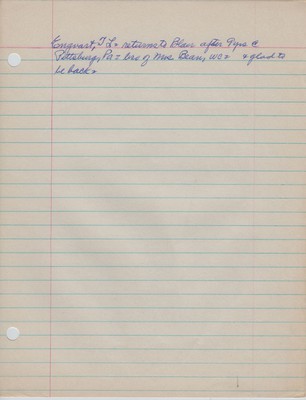 Engvart, T L - returns to Blair after 9 yrs @
Pittsburg, Pa - bro of Mrs Bean, wc - & glad to
be back -